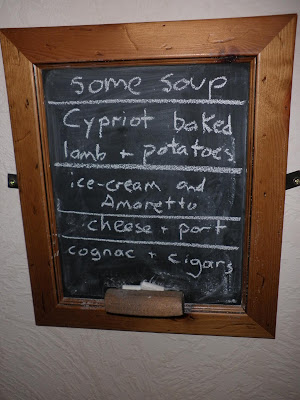 some soup
Cypriot baked
lamb + potatoes
ice-cream and
Amaretto
cheese + port
cognac + cigars